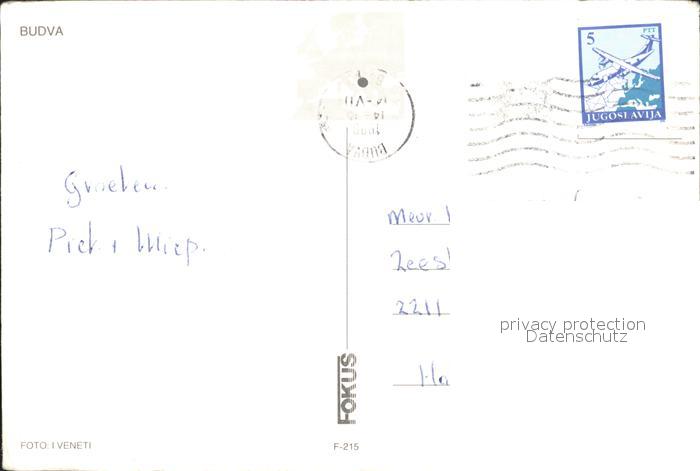 BUDVA
5 PTT
JUGOSLAVIJA
BUDVA
Groeten.
Piet + Miep.
Mevr.
Zees
2211
Ha
privacy protection
Datenschutz
FOKUS
FOTO: I VENETI
F-215